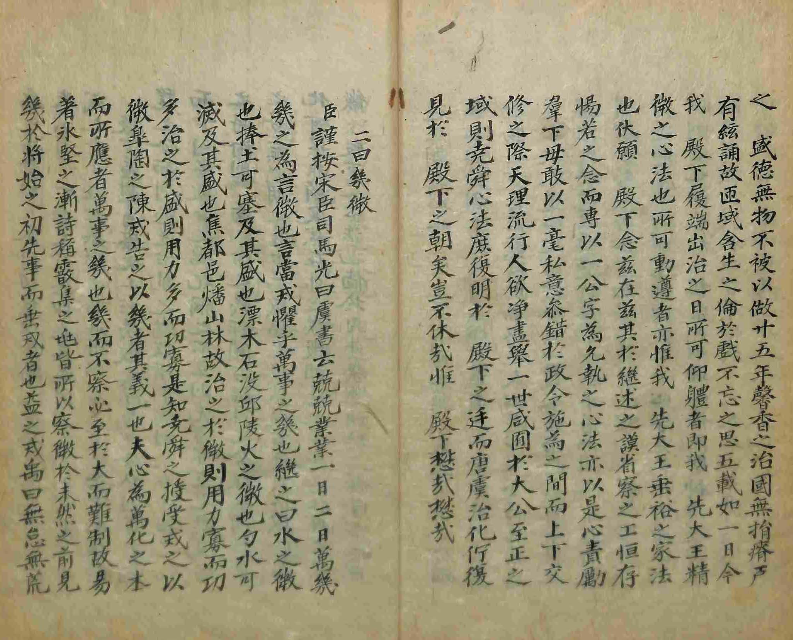 之　盛德無物不被以做廿五年馨香之治國無捐瘠戸
有絃誦故匝域含生之倫於戲不忘之思五載如一日今
我　殿下履端出治之日所可仰軆者即我　先大王精
微之心法也所可動遵者亦惟我　先大王垂裕之家法
也伏願　殿下念兹在兹其於繼述之謨省察之工恒存
惕若之念而專以一公字為允執之心法亦以是心責勵
羣下毋敢以一毫私意叅錯於政令施為之間而上下交
修之際天理流行人欲淨盡舉一世咸囿於大公至正之
域則堯舜心法庶復明於　殿下之廷而唐虞治化佇復
見於　殿下之朝矣豈不休哉惟　殿下懋哉懋哉
二曰幾微
臣謹按宋臣司馬光曰虞書云兢兢業業一日二日萬幾
幾之為言微也言當戒懼乎萬事之幾也継之曰水之微
也捧土可塞及其盛也漂木石没邱陵火之微也勺水可
滅及其盛也焦都邑燔山林故治之於微則用力寡而功
多治之於盛則用力多而功寡是知堯舜之授受戒之以
微皐陶之陳戒告之以幾者其義一也夫心為萬化之本
而所應者萬事之幾也幾而不察必至於大而難制故易
著氷堅之漸詩稱霰集之比皆所以察微於未然之前見
幾於將始之初先事而垂戒者也益之戒禹曰無怠無荒